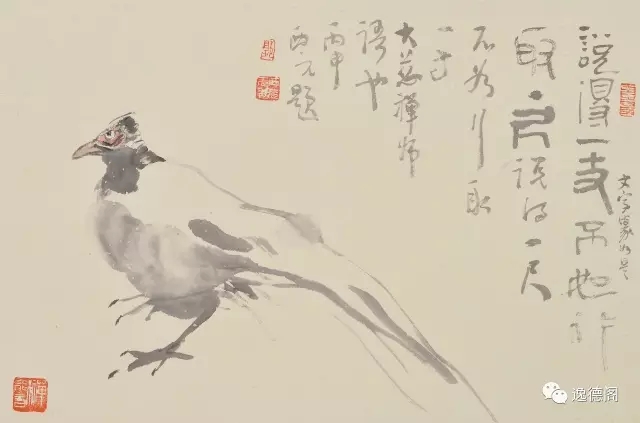 說得一丈不如行
取一尺說得一尺
不如行取
一寸
大慈禪師
語也
丙申
逸德阁